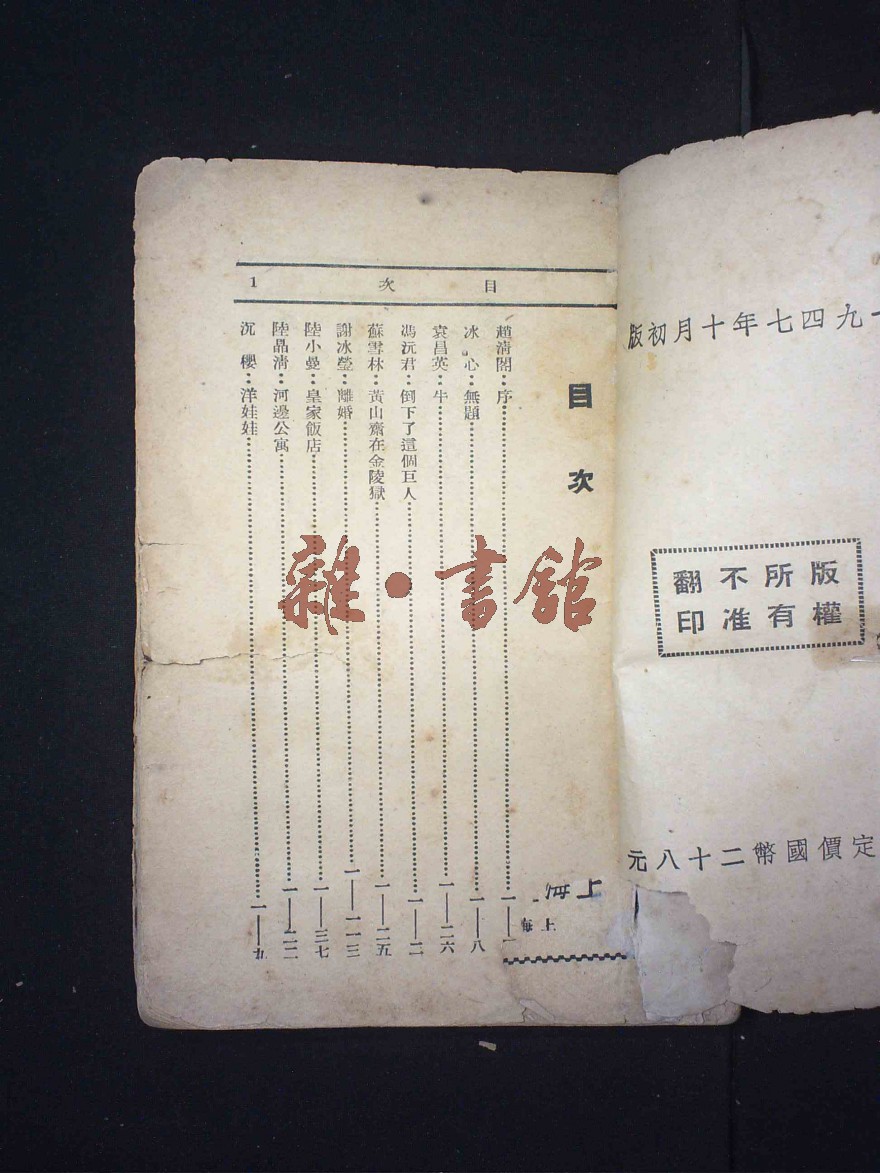 一九四七年十月初版
版權所有
不准翻印
定價國幣二十八元
目次 1
目次
趙淸閣：序
冰心：無題 一——八
袁昌英：牛 一——二六
馮沅君：倒下了這個巨人 一——二
蘇雪林：黃山齋在金陵獄 一——二五
謝冰瑩：離婚 一——一一三
陸小曼：皇家飯店 一——三七
陸晶淸：河邊公寓 一——二二
沉櫻：洋娃娃 一——九
上海
上海
雜·書館